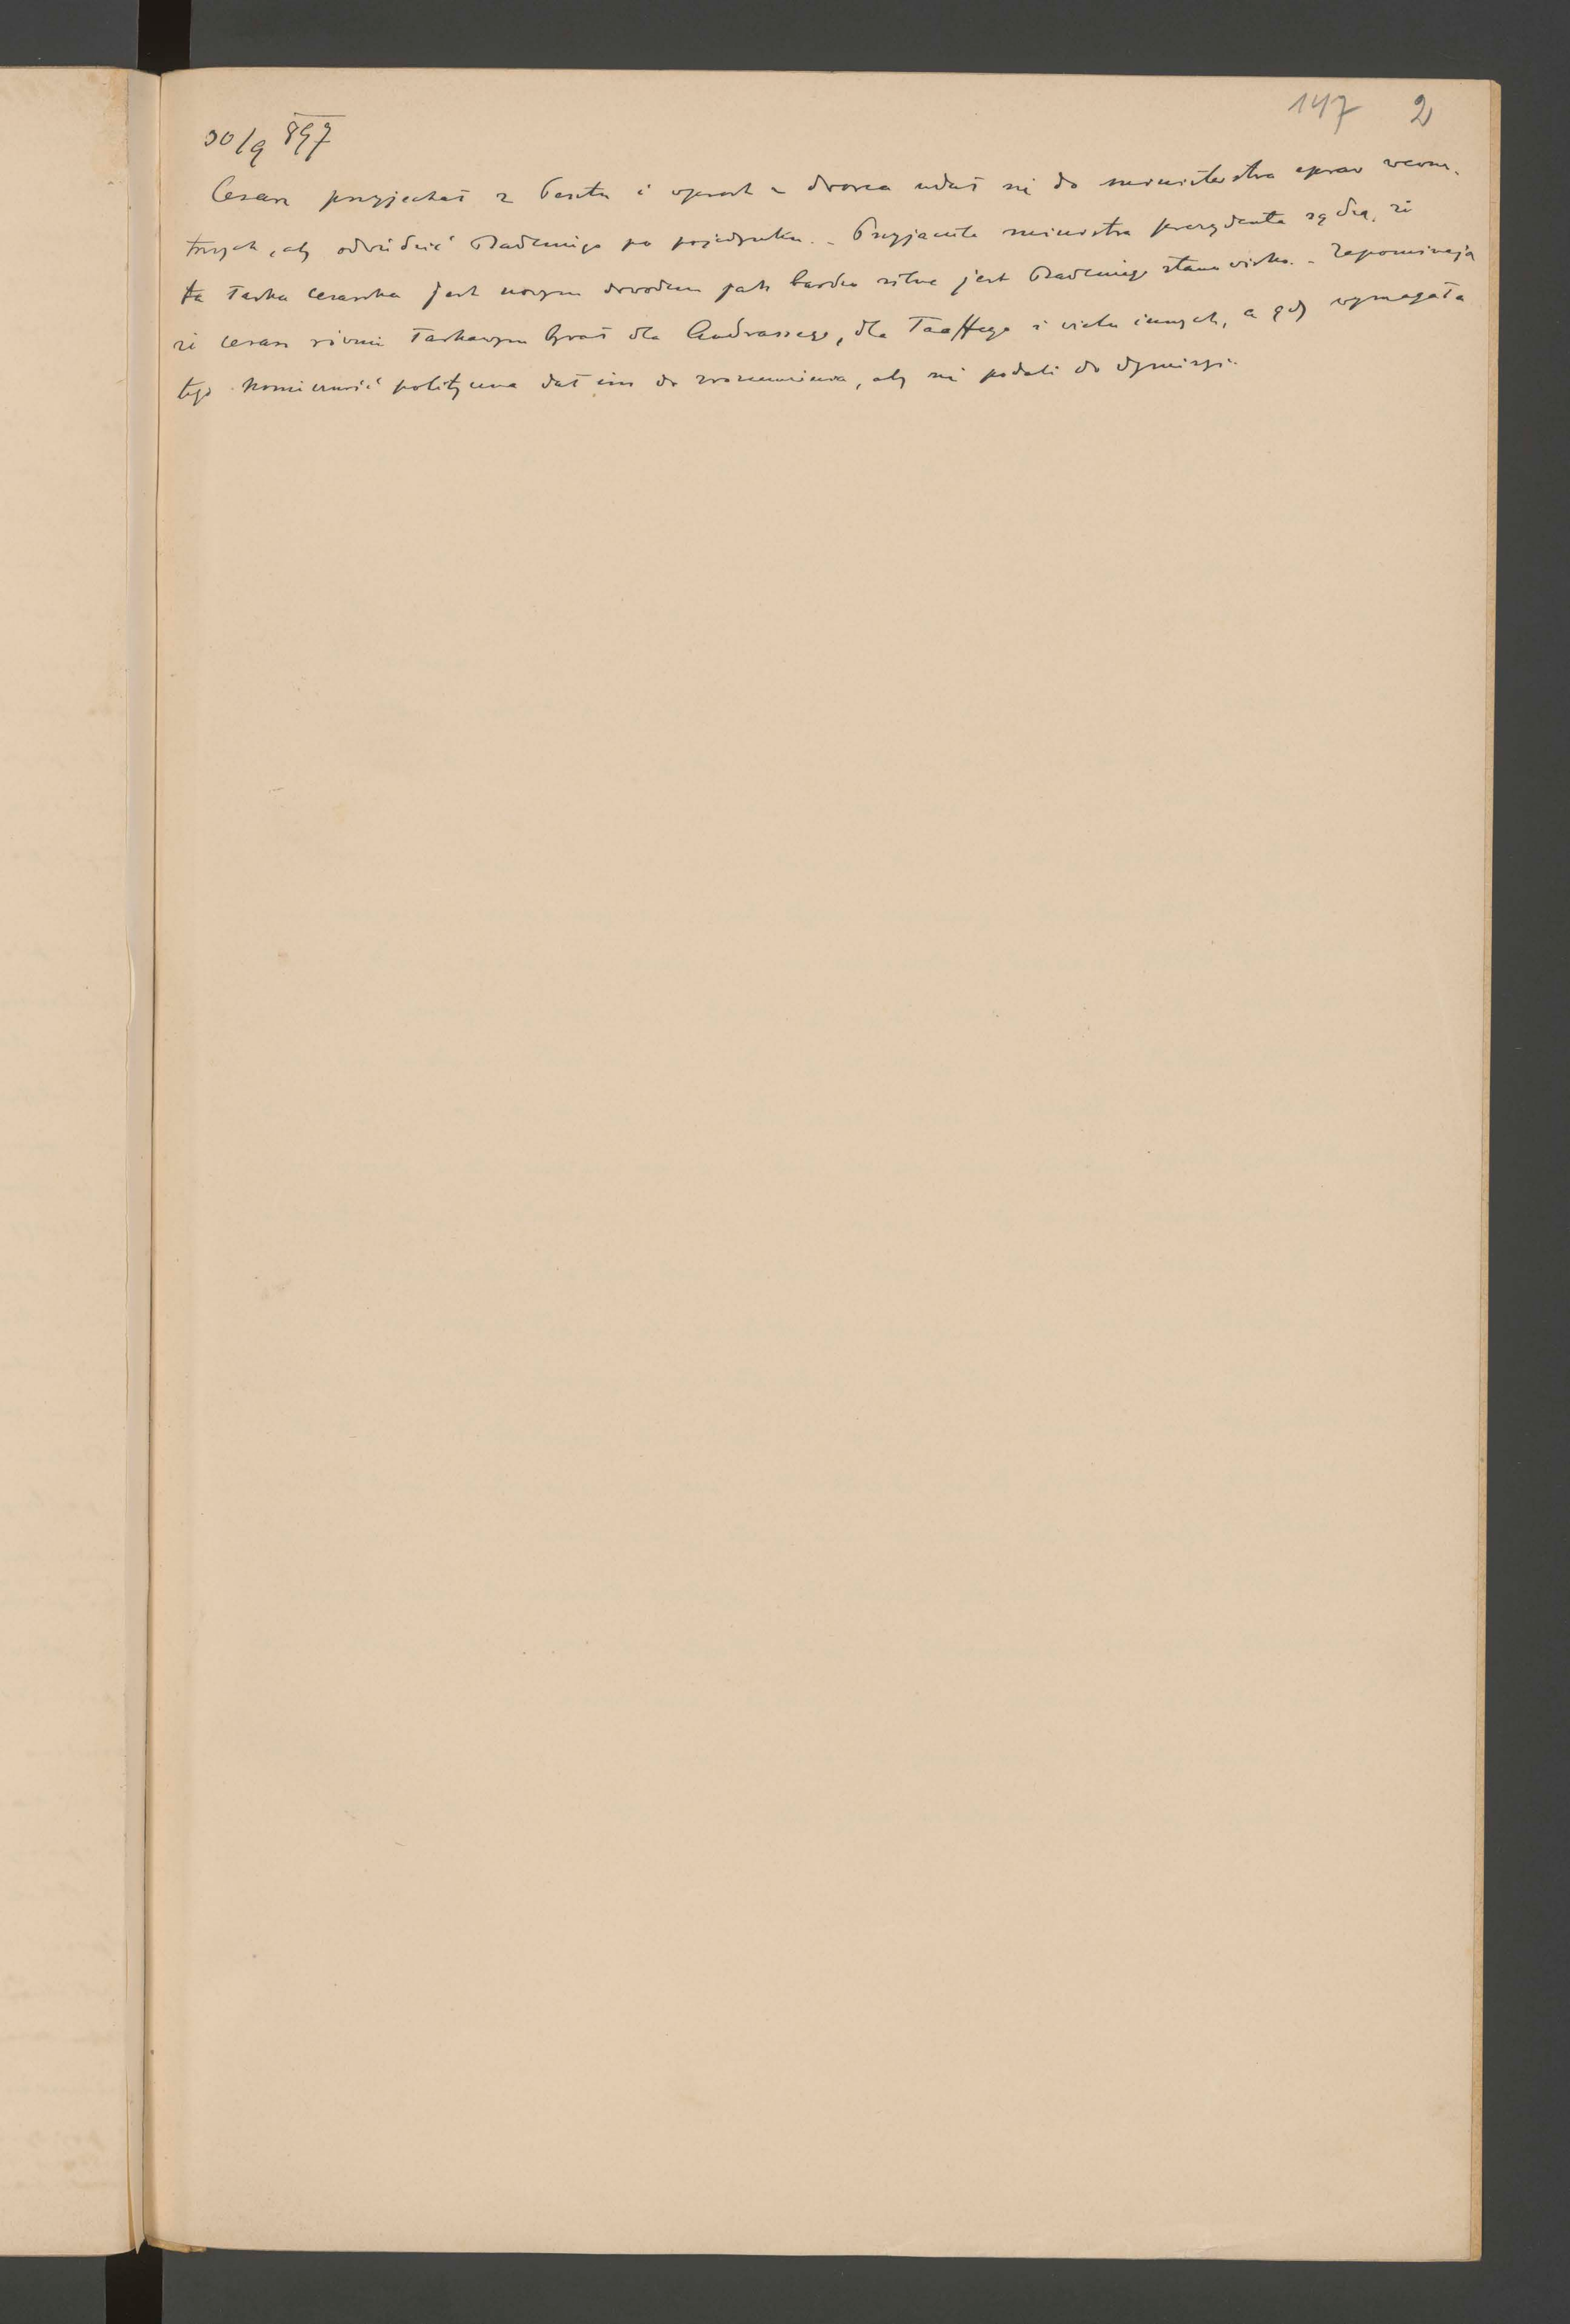 147 2
30/9 897
Cesarz przyjechał z Pesztu i wprost z dworca udał się do ministerstwa spraw wewn.
trznych, aby odwiedzić Badeniego po pojedynku. - Przyjaciele ministra prezydenta sądzą, że
ta łaska cesarska jest nowym dowodem jak bardzo silne jest Badeniego stanowisko. - Zapominają
że cesarz równie łaskawym bywał dla Andrassego, dla Taaffego i wielu innych, a gdy wymagała
tego konieczność polityczna dał im do zrozumienia, aby się podali do dymisyi.